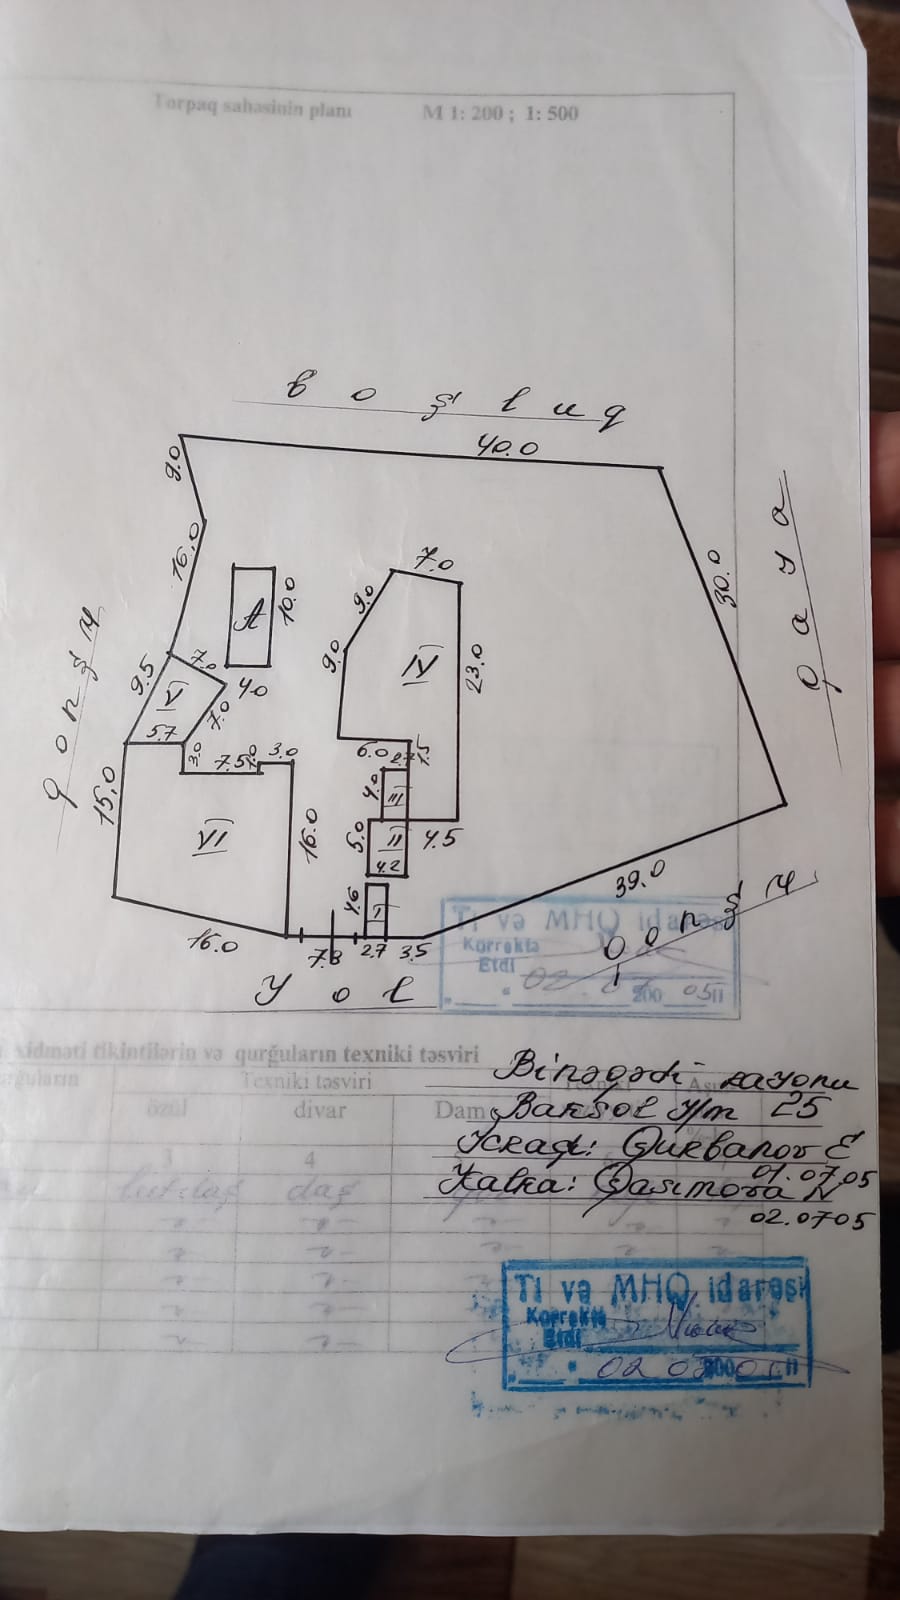 Torpaq sahəsinin planı M 1: 200 ; 1: 500
boşluq
40.0
9.0
16.0
30.0
qaya
7.0
9.0
A
10.0
9.0
IV
23.0
qonşu
9.5
7.0
4.0
V
7.0
5.7
3.0
7.5
3.0
6.0
2.7
1.5
15.0
4.0
III
VI
16.0
5.0
II
4.2
4.5
39.0
4.6
I
16.0
7.8
2.7
3.5
Qonşu
Yol
Tİ və MHQ idarəsi
Korrektə
Etdi
02 200 05 il
xidməti tikintilərin və qurğuların texniki təsviri
Texniki təsviri
özül divar Dam
3 4
daş
Binəqədi rayonu
25
Qurbanov E
01.07.05
Qasımova N
02.0705
Tİ və MHQ idarəsi
Korrektə
Etdi
02